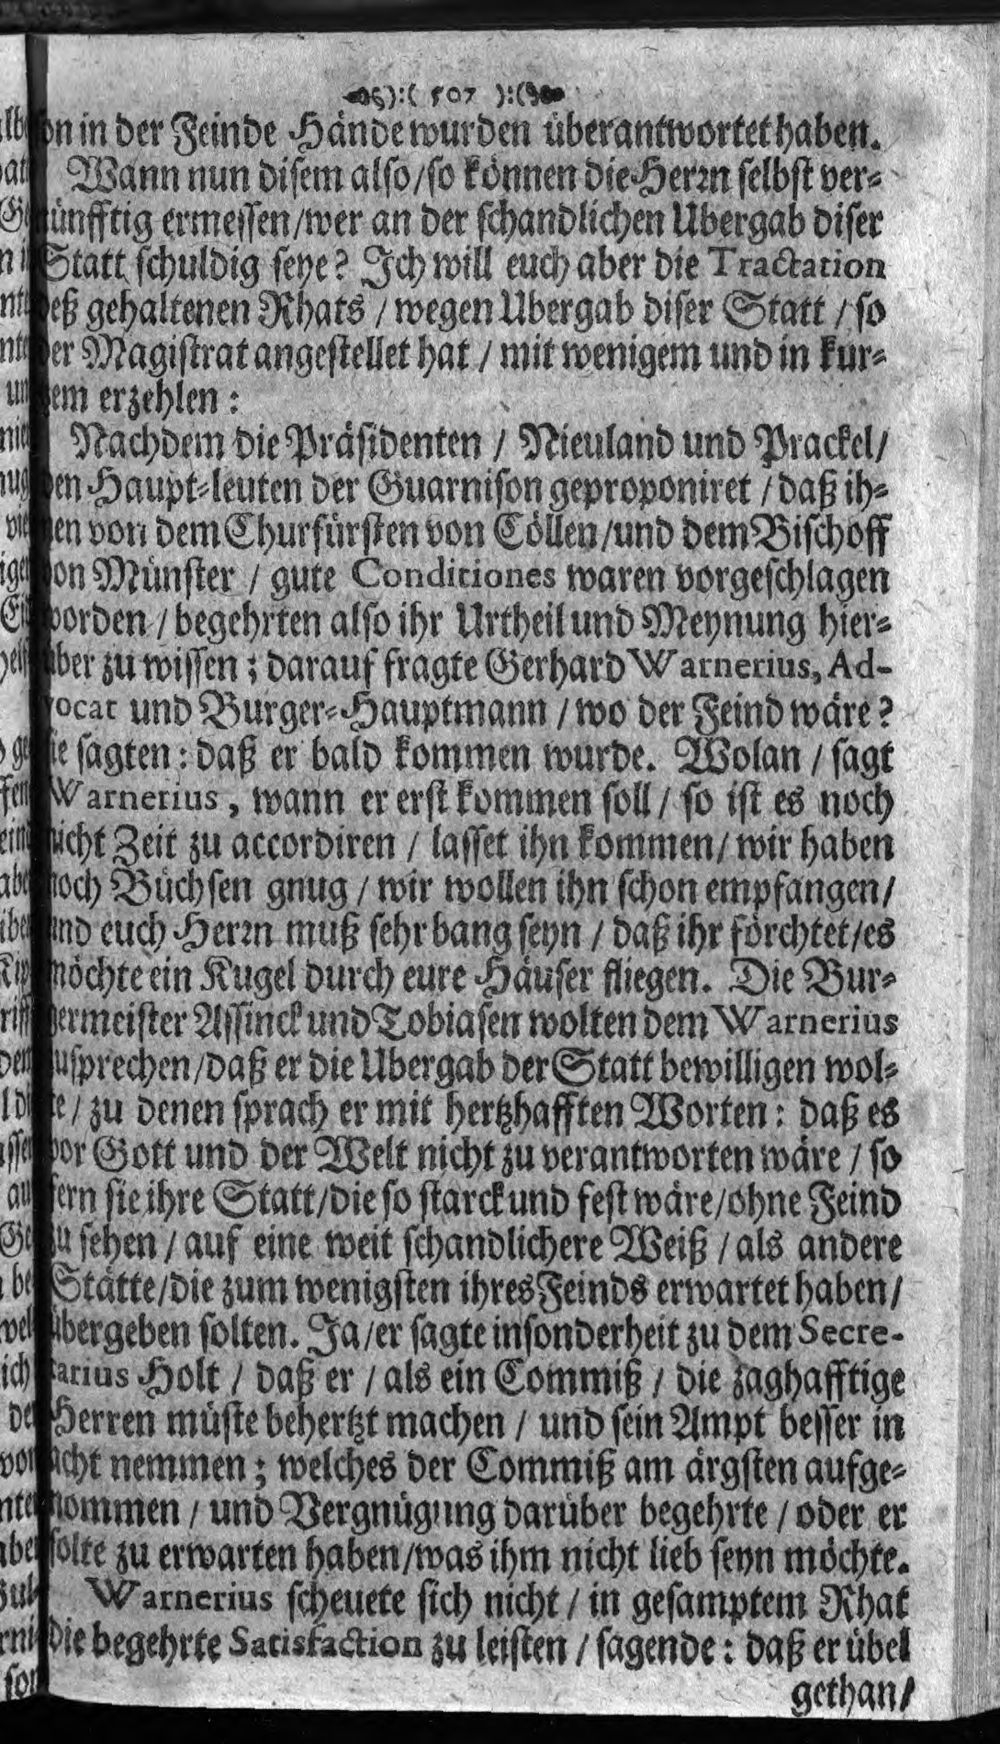 ):( 507 ):(
son in der Feinde Hände wurden überantwortet haben.
Wann nun disem also/so können die Herrn selbst ver-
nünfftig ermessen/wer an der schandlichen Ubergab diser
Statt schuldig seye? Ich will euch aber die Tractation
deß gehaltenen Rhats / wegen Ubergab diser Statt / so
der Magistrat angestellet hat / mit wenigem und in kur-
tzem erzehlen :
Nachdem die Präsidenten / Nieuland und Prackel/
den Haupt-leuten der Guarnison geproponiret / daß ih-
nen von dem Churfürsten von Cöllen/und dem Bischoff
von Münster / gute Conditiones waren vorgeschlagen
worden / begehrten also ihr Urtheil und Meynung hier-
über zu wissen ; darauf fragte Gerhard Warnerius, Ad-
vocat und Burger-Hauptmann / wo der Feind wäre?
sie sagten : daß er bald kommen wurde. Wolan / sagt
Warnerius , wann er erst kommen soll / so ist es noch
nicht Zeit zu accordiren / lasset ihn kommen/ wir haben
noch Büchsen gnug / wir wollen ihn schon empfangen/
und euch Herrn muß sehr bang seyn / daß ihr förchtet/es
möchte ein Kugel durch eure Häuser fliegen. Die Bur-
germeister Assinck und Tobiasen wolten dem Warnerius
zusprechen/daß er die Ubergab der Statt bewilligen wol-
te / zu denen sprach er mit hertzhafften Worten : daß es
vor Gott und der Welt nicht zu verantworten wäre / so
fern sie ihre Statt/die so starck und fest wäre/ohne Feind
zu sehen / auf eine weit schandlichere Weiß / als andere
Stätte/die zum wenigsten ihres Feinds erwartet haben/
übergeben solten. Ja/er sagte insonderheit zu dem Secre-
tarius Holt / daß er / als ein Commiß / die zaghafftige
Herren müste behertzt machen / und sein Ampt besser in
acht nemmen ; welches der Commiß am ärgsten aufge-
nommen / und Vergnügung darüber begehrte / oder er
solte zu erwarten haben/was ihm nicht lieb seyn möchte.
Warnerius scheuete sich nicht / in gesamptem Rhat
die begehrte Satisfaction zu leisten / sagende : daß er übel
gethan/